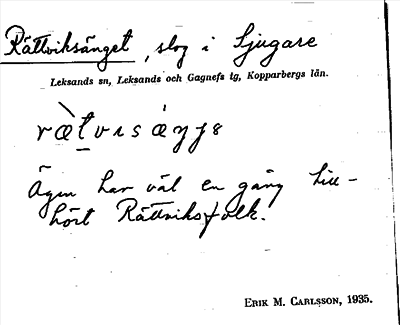 Rättviksänget, slog i Ljugare
Leksands sn, Leksands och Gagnefs tg, Kopparbergs län.
Ägen har väl en gång till-
hört Rättviksfolk.
ERIK M. CARLSSON, 1935.